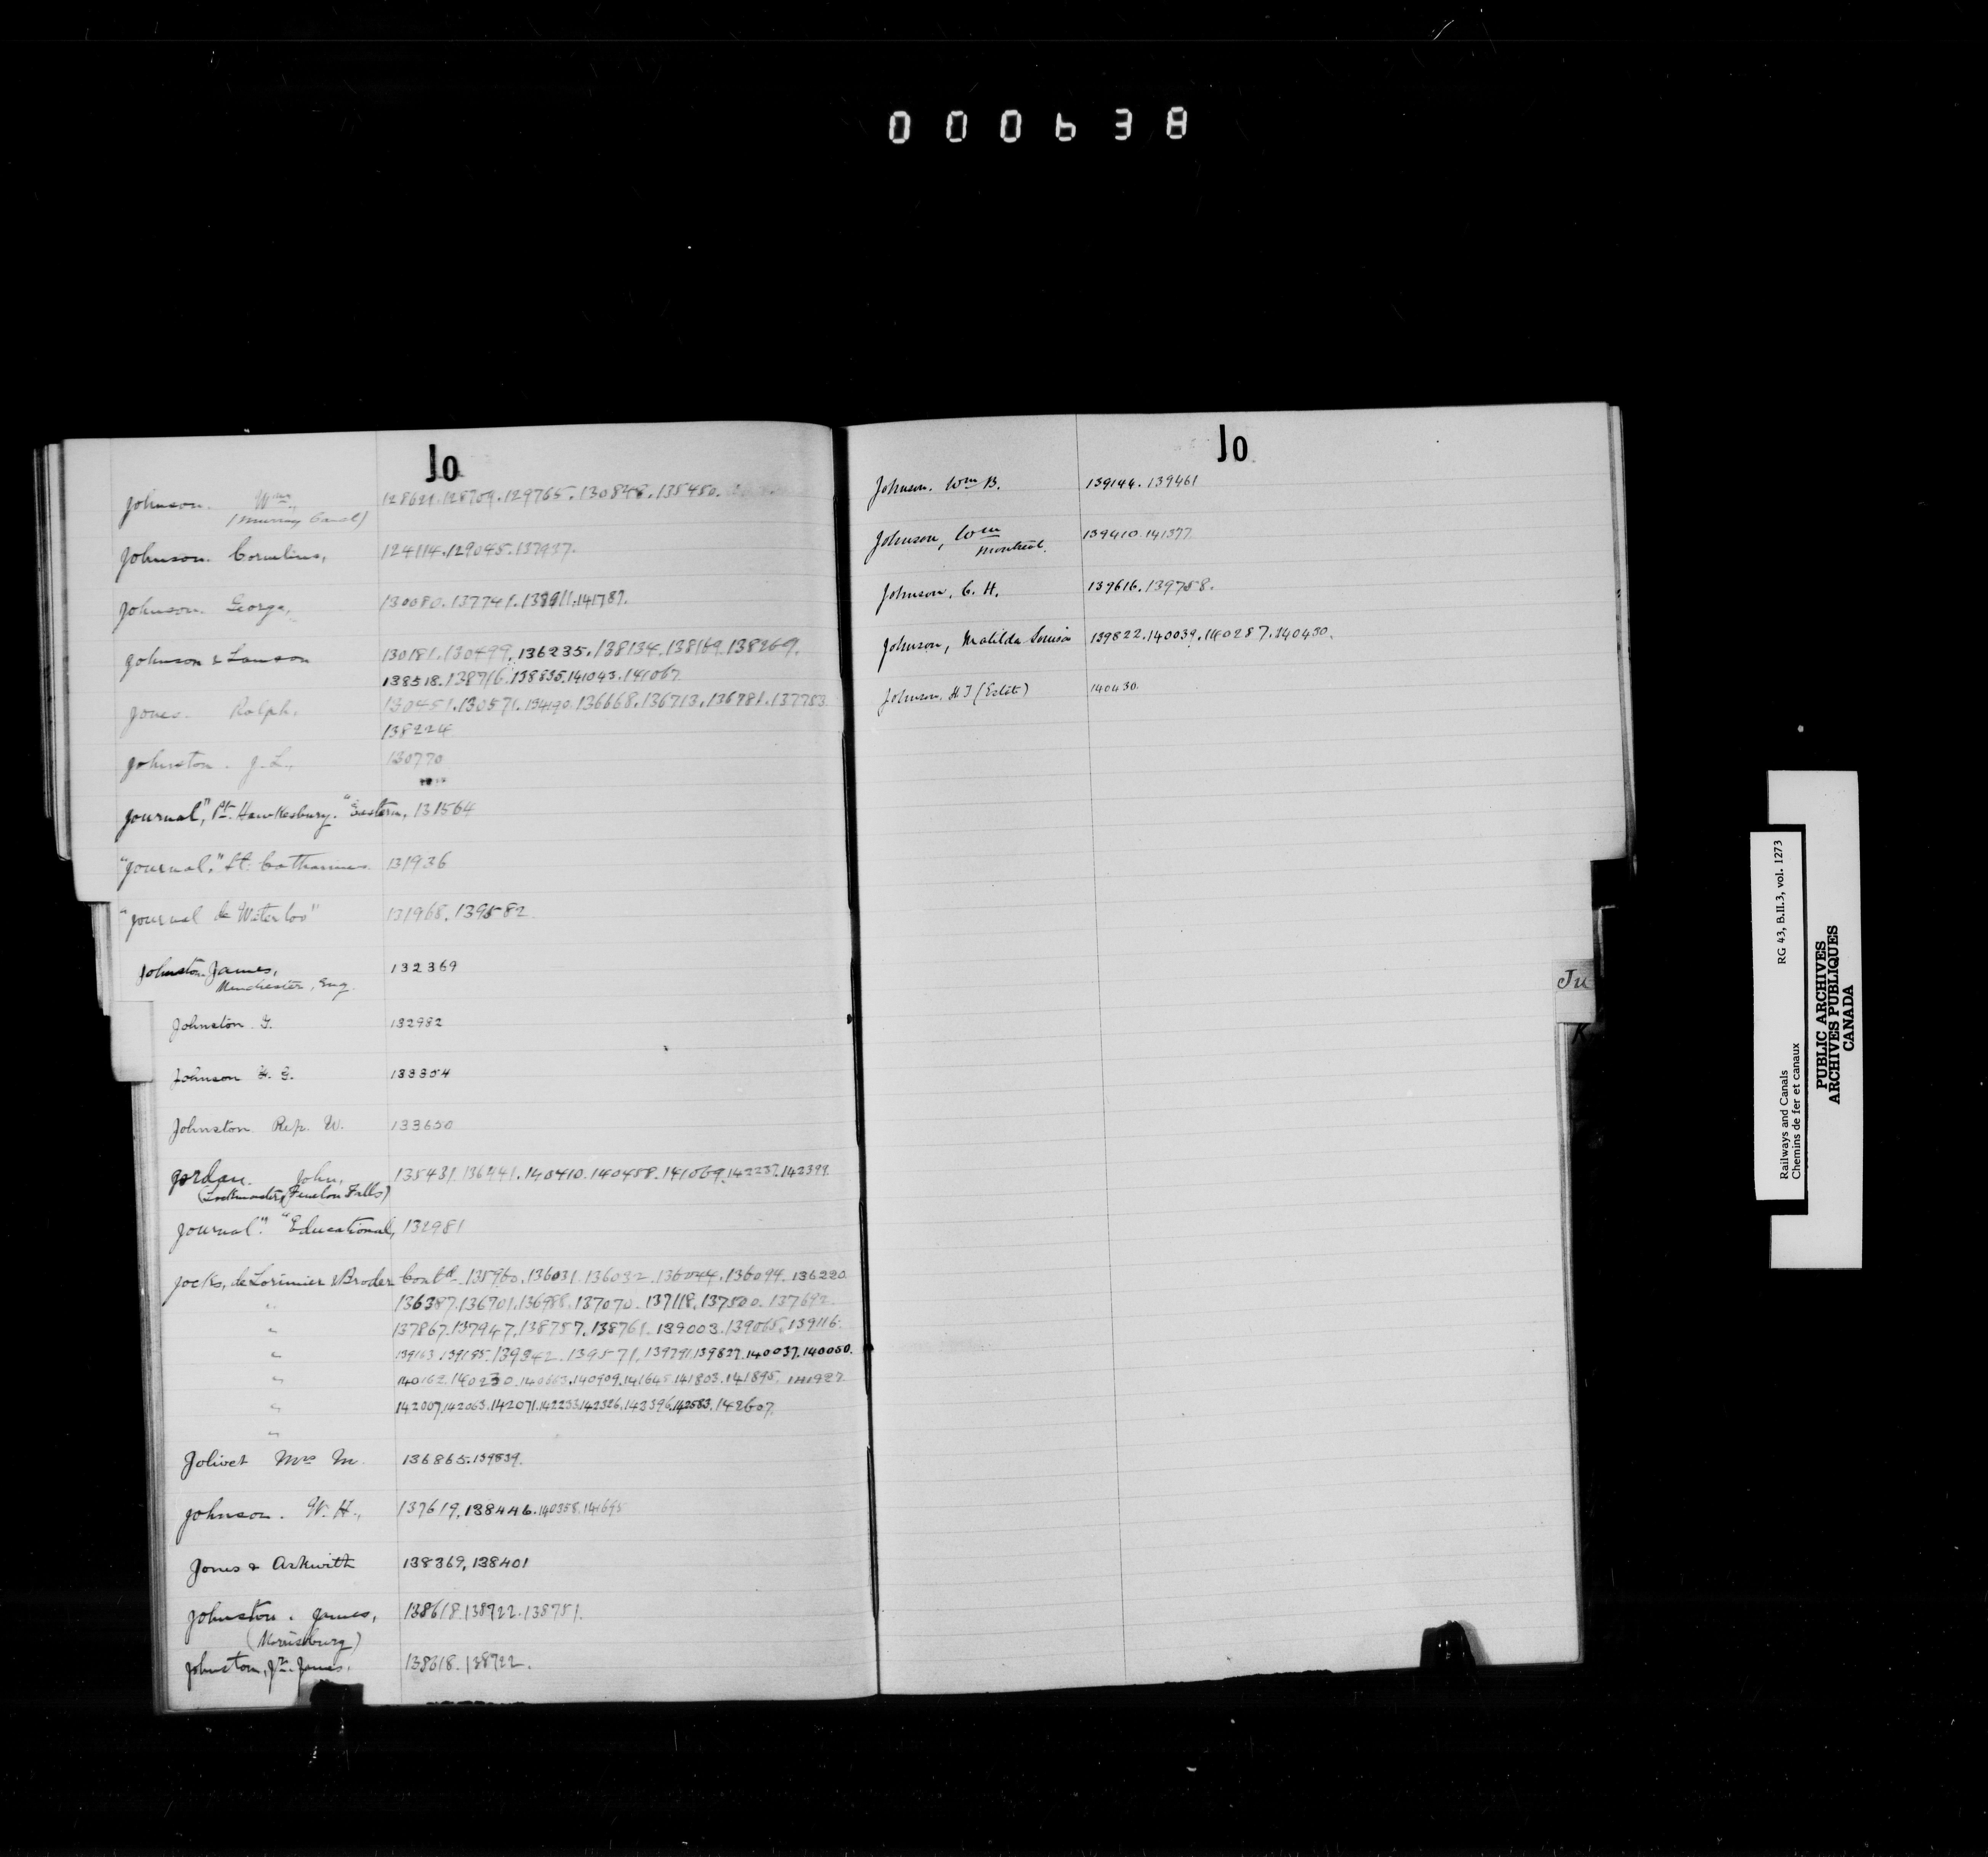 000638
Jo
Johnson. Wm.,
(Murray Canal)
128621.128709.129765.130848.135450.
Johnson. Cornelius, 124114.129045.137937.
Johnson. George, 130080.137741.138911.141787.
Johnson & Lawson 130181.130499.136235.138134.138169.138269.
138518.138716.138835.141043.141067.
Jones. Ralph, 130451.130571.134190.136668.136713.136981.137753
138224
Johnston. J. L., 130770
Journal", Pt. Hawkesbury. "Eastern, 131564
"Journal," St. Catharines 131936
"Journal de Waterloo" 131968.139582
Johnston James, 132369
Manchester, Eng.
Johnston G. 132982
Johnson 133304
Johnston Rep. W. 133650
Jordan. John, 135431.136441.140410.140458.141069.142237.142399
(Lockmaster, Fenelon Falls)
Journal". "Educational, 132981
Jocks, de Lorimier & Broder Contd. 135960.136031.136032.136044.136094.136220
" 136387.136701.136988.137070.137118.137520.137692.
" 137867.137947.138757.138761.139003.139065.139116.
" 139163.139195.139342.139571.139791.139827.140037.140050.
" 140162.140230.140663.140909.141645.141803.141895.141927
" 142007.142063.142071.142233.142326.142396.142583.142607.
"
Jolivet Mrs M. 136865.139839.
Johnson. W. H., 137619.138446.140358.141695
Jones & Askwith 138369, 138401
Johnston. James, 138618.138722.138751.
(Morrisburg)
Johnston, Jr. James. 138618.138722.
Jo
Johnson. Wm B. 139144.139461
Johnson, Wm 139410.141377
Montreal.
Johnson, C. H. 139616.139758.
Johnson, Matilda Louisa 139822.140039.140287.140430.
Johnson, H J (Estate) 140430.
Ju
K
Railways and Canals RG 43, B.II.3, vol. 1273
Chemins de fer et canaux
PUBLIC ARCHIVES
ARCHIVES PUBLIQUES
CANADA